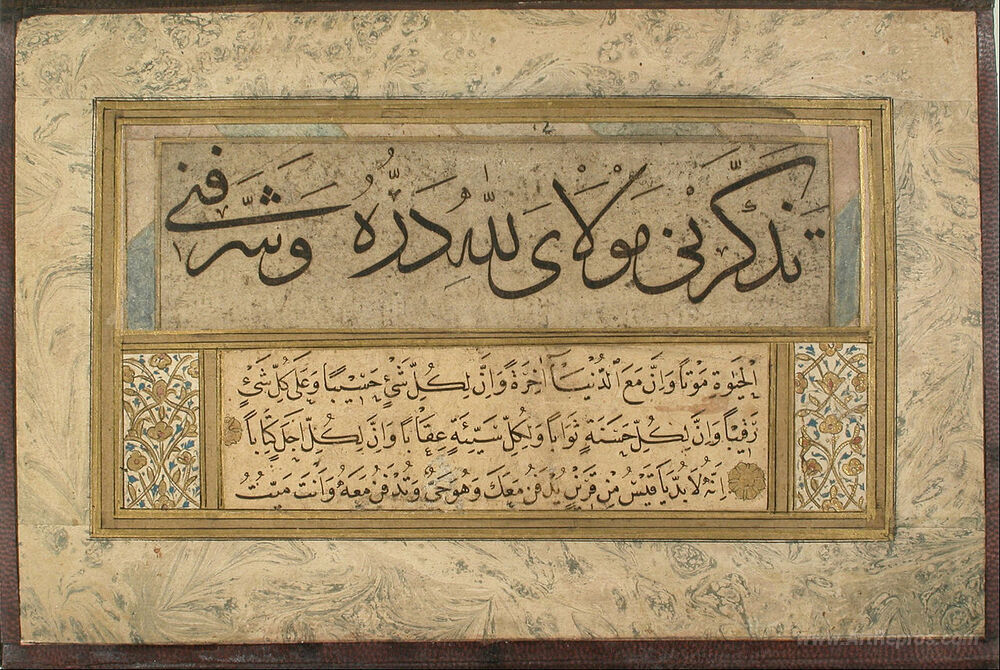 تَذَكَّرَنِى مَوْلَاىَ لِلّٰهِ دَرُّهُ وَشَرَّفَنِى
الْحَيٰوةِ مَوْتاً وَاِنَّ مَعَ الدُّنْيَا اٰخِرَةً وَاِنَّ لِكُلِّ شَىْءٍ حَسِيبًا وَعَلَى كُلِّ شَىْءٍ
رَقِيباً وَاِنَّ لِكُلِّ حَسَنَةٍ ثَوَاباً وَلِكُلِّ سَيِّئَةٍ عِقَاباً وَاِنَّ لِكُلِّ اَجَلٍ كِتَاباً
اِنَّهُ لَا بُدَّ يَا قَيْسُ مِنْ قَرِينٍ يُدْفَنُ مَعَكَ وَهُوَ حَىٌّ وَتُدْفَنُ مَعَهُ وَاَنْتَ مَيِّتٌ